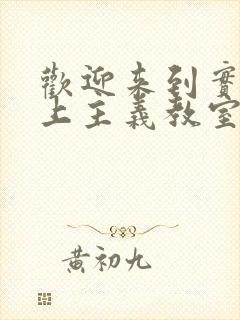 歡迎来到實
上主義教室
黃初九